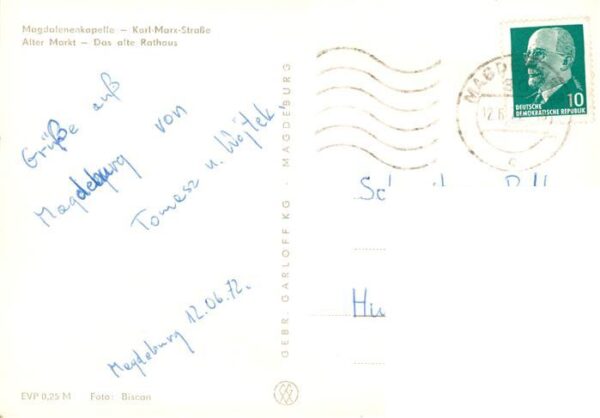 Magdalenenkapelle – Karl-Marx-Straße
Alter Markt – Das alte Rathaus
Grüße auß
Magdeburg von
Tomasz u. Wojtek
Magdeburg 12.06.72.
EVP 0,25 M Foto: Biscan
GEBR. GARLOFF KG · MAGDEBURG
10
DEUTSCHE
DEMOKRATISCHE REPUBLIK